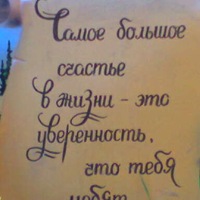 Самое большое
счастье
в жизни - это
уверенность,
что тебя